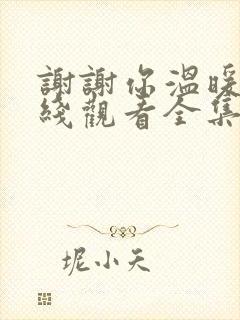 謝謝你溫暖
綫觀看全集
坭小天